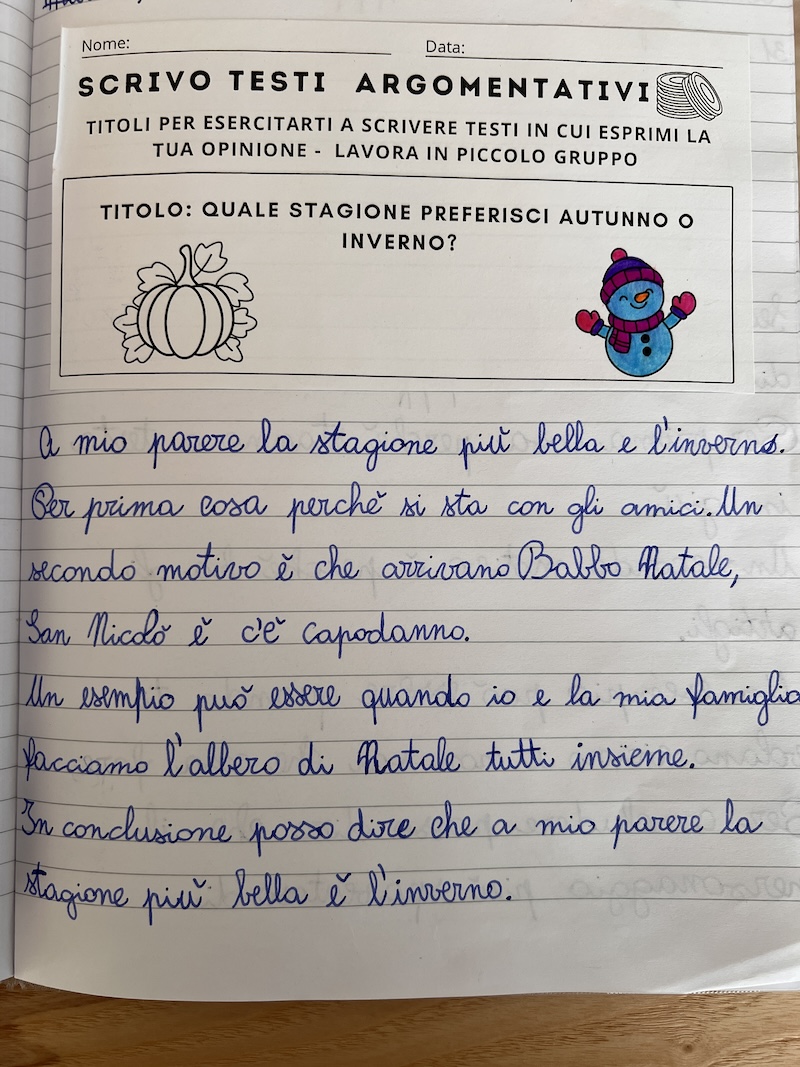 Nome:
Data:
SCRIVO TESTI ARGOMENTATIVI
TITOLI PER ESERCITARTI A SCRIVERE TESTI IN CUI ESPRIMI LA
TUA OPINIONE - LAVORA IN PICCOLO GRUPPO
TITOLO: QUALE STAGIONE PREFERISCI AUTUNNO O
INVERNO?
A mio parere la stagione più bella e l'inverno.
Per prima cosa perchè si sta con gli amici. Un
secondo motivo è che arrivano Babbo Natale,
San Nicolò è c'è capodanno.
Un esempio può essere quando io e la mia famiglia
facciamo l'albero di Natale tutti insieme.
In conclusione posso dire che a mio parere la
stagione più bella è l'inverno.